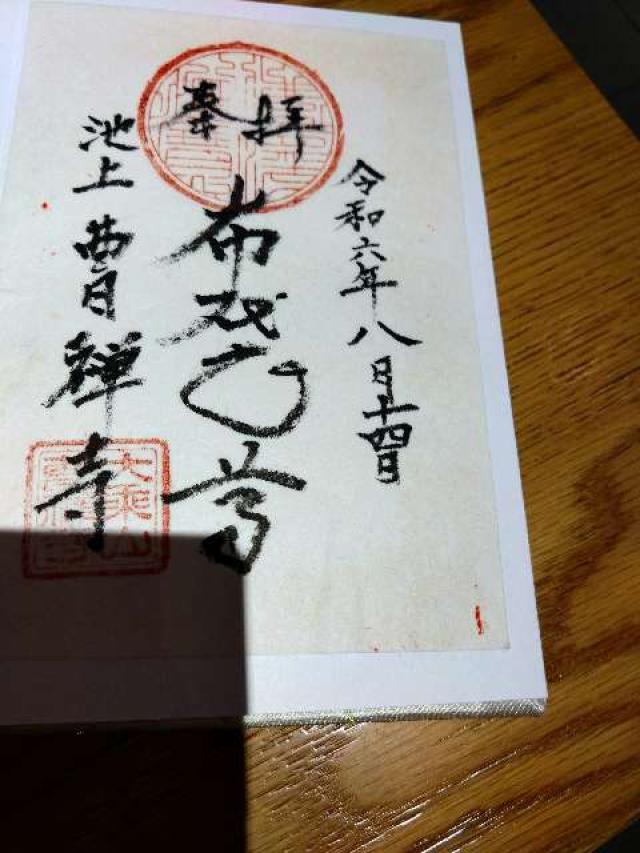 奉拝
令和六年八月十四日
布袋尊
池上 曹禅寺
大乗山